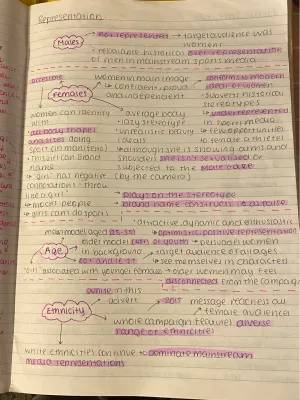 Representation
Males
not represented → target audience was women
rebalance historical over representation of men in mainstream sports media
accessible
women in main image
conforms to modern ideal of women
Females
confident, proud and independent
subvert historical stereotypes
women can identify with
average body
underrepresented in sport media
all body shapes and sizes doing sport (cam quotation)
lazy stereotype
unrealistic beauty ideals
few opportunities to be male athlete
'This girl can' brand name
although she is showing arms and shoulders she isn't sexualised or subjected to the male gaze (by the camera)
'girl' has negative connotations - 'throw like a girl'
plays on the stereotype
most people
brand name constructs it as praise
girls can't do sports
attractive, dynamic and enthusiastic
main model aged
optimistic positive representation
Age
older model
of youth
persuades women
in background
target audience of all ages
see themselves in characters
'girl' associated with younger females
older women may feel disconnected from the campaign
white in this advert
2015
message reaches all female audiences
Ethnicity
whole campaign features diverse range of ethnicities
white ethnicities continue to dominate mainstream media representations